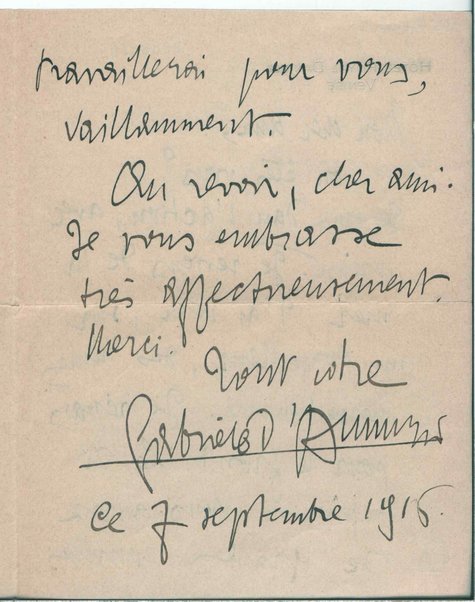 travaillerai pour vous,
vaillamment.
Au revoir, cher ami.
Je vous embrasse
très affectueusement.
Merci.
Tout votre
Gabriele D'Annunzio
Ce 7 septembre 1916.